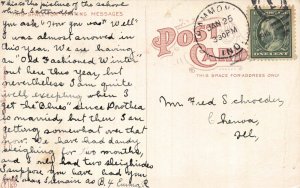 this the picture of the school
which
you ask "how you was" Well I
was almost snowed in
this year. We are having
an "Old Fashioned Winter"
out here this year, but
nevertheless I am quite
well excepting when I
get the "Blues" since Brother
is married, but then I am
getting somewhat over that
now. We have had dandy
sleighing for two months
and I only had two sleighrides
Suppose you have had your
full
JAN 25
30PM
POST
CARD
THIS SPACE FOR ADDRESS ONLY
ONE CENT
Mr Fred Schroeder
Chenoa,
Ill,